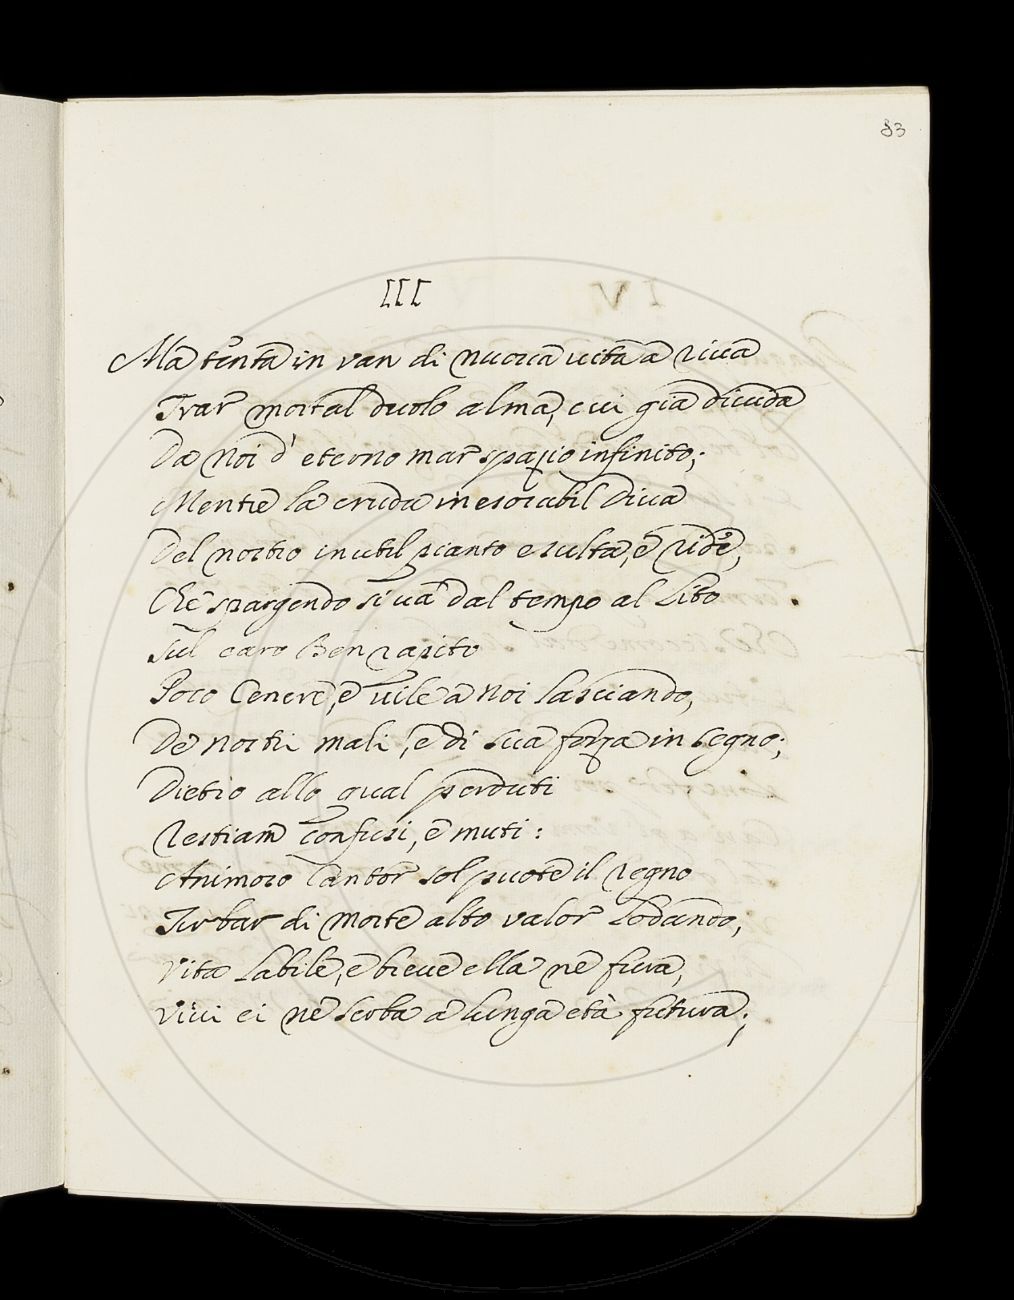 83
III
Ma tenta in van di nuova vita a riva
Trar mortal duolo alma, cui già divida
Da noi d'eterno mar spazio infinito;
Mentre la cruda inesorabil Diva
Del nostro inutil pianto esulta, e ride,
Che spargendo si va dal tempo al Lito
Sul caro Ben rapito
Poco Cenere, e vile a noi lasciando,
De nostri mali, e di sua forza in segno;
Dietro allo qual perduti
Restiam confusi, e muti:
Animoso Cantor sol puote il regno
Turbar di Morte alto valor Lodando,
Vita Labile, e breve ella ne fura,
Vivi ei ne serba a lunga età futura;